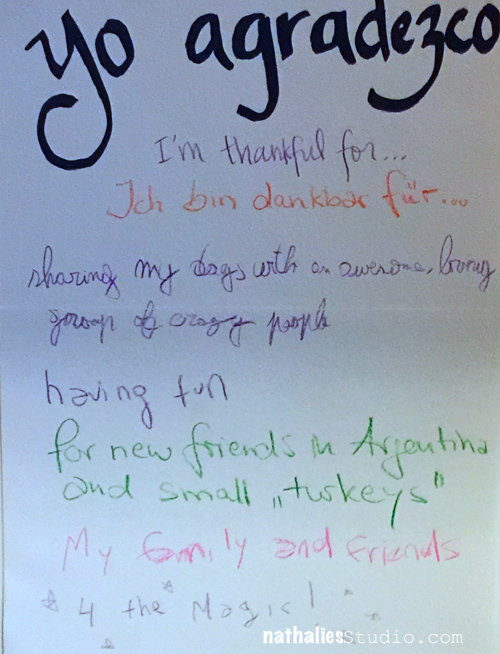 yo agradezco
I'm thankful for...
Ich bin dankbar für...
sharing my dogs with an awesome, loving
group of crazy people
having fun
for new friends in Argentina
and small „turkeys"
My family and friends
4 the Magic!
nathaliesstudio.com